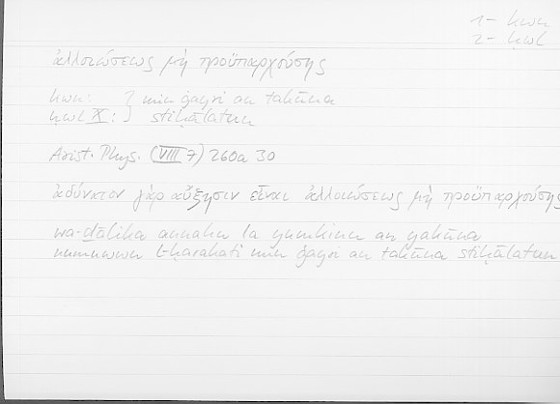 1 - kwn
2 - ḥwl
ἀλλοιώσεως μὴ προϋπαρχούσης
kwn: } min ġayri an takūna
ḥwl X: } stiḥālatun
Arist. Phys. (VIII 7) 260a 30
ἀδύνατον γὰρ αὔξησιν εἶναι ἀλλοιώσεως μὴ προϋπαρχούσης
wa-ḏālika annahu la yumkinu an yakūna
numuwwu l-ḥarakati min ġayri an takūna stiḥālatun